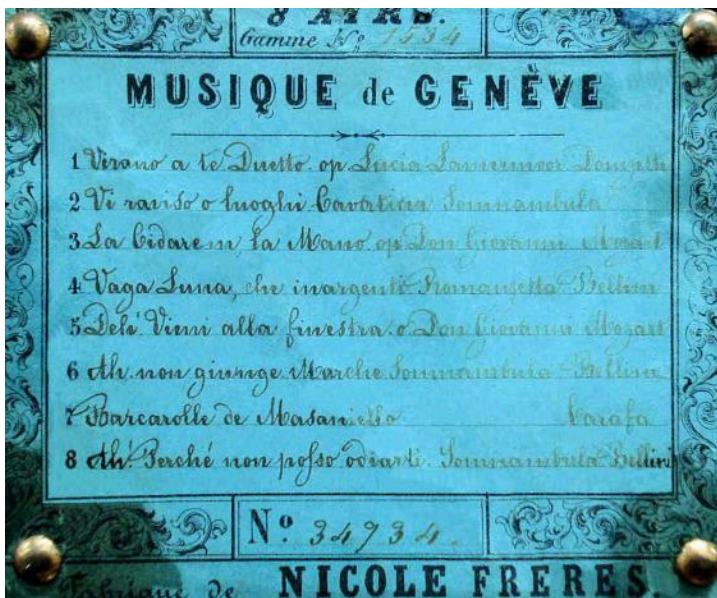 8 AIRS.
Gamme No 1534
MUSIQUE de GENÈVE
1 Verano a te Duetto op Lucia Lamermoor Donizetti
2 Vi raviso o luoghi Cavatina Somnambula
3 La Cidarem la Mano op Don Giovanni Mozart
4 Vaga Luna, che inargenti Romanzetta Bellini
5 Deh! Vieni alla finestra o Don Giovanni Mozart
6 Ah non giunge Marche Somnambula Bellini
7 Barcarolle de Masaniello Carafa
8 Ah! Perché non posso odiarti. Somnambula Bellini
No. 34734.
Fabrique de NICOLE FRERES.